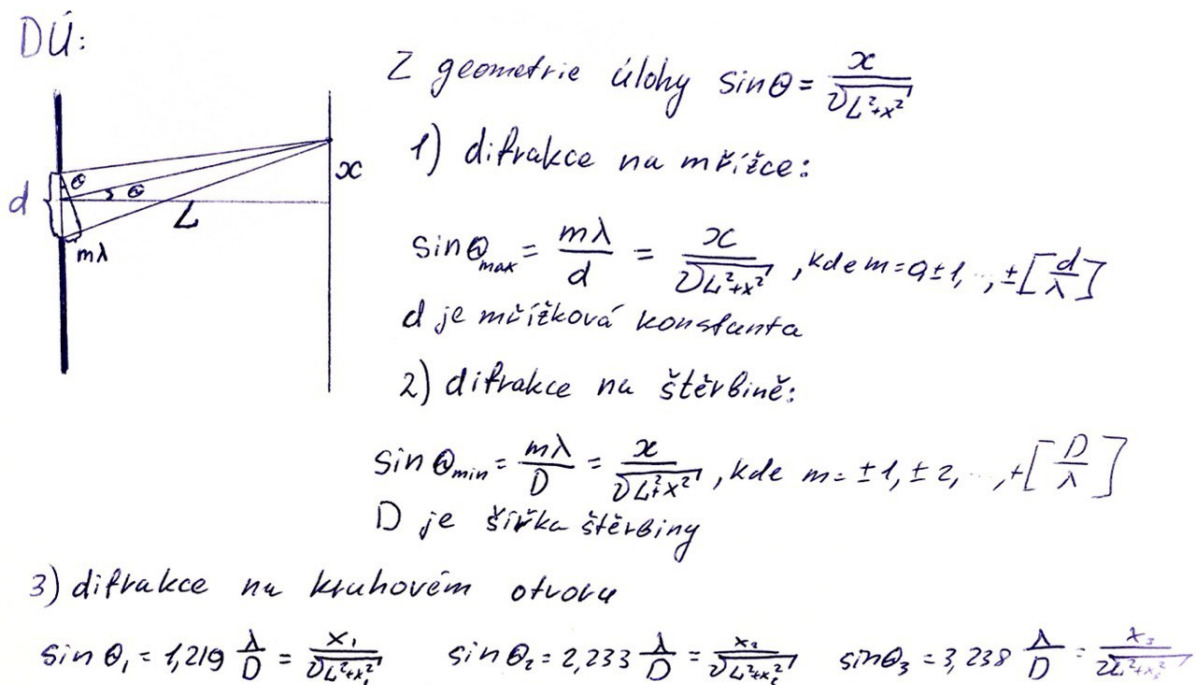 DÚ:
Z geometrie úlohy sinθ = x/√(L²+x²)
1) difrakce na mřížce:
d
θ
θ
L
x
mλ
sinθmax = mλ/d = x/√(L²+x²), kde m=0,±1,..,±[d/λ]
d je mřížková konstanta
2) difrakce na štěrbině:
sinθmin = mλ/D = x/√(L²+x²), kde m=±1,±2,...,+[D/λ]
D je šířka štěrbiny
3) difrakce na kruhovém otvoru
sinθ₁ = 1,219 λ/D = x₁/√(L²+x₁²) sinθ₂ = 2,233 λ/D = x₂/√(L²+x₂²) sinθ₃ = 3,238 λ/D = x₃/√(L²+x₃²)